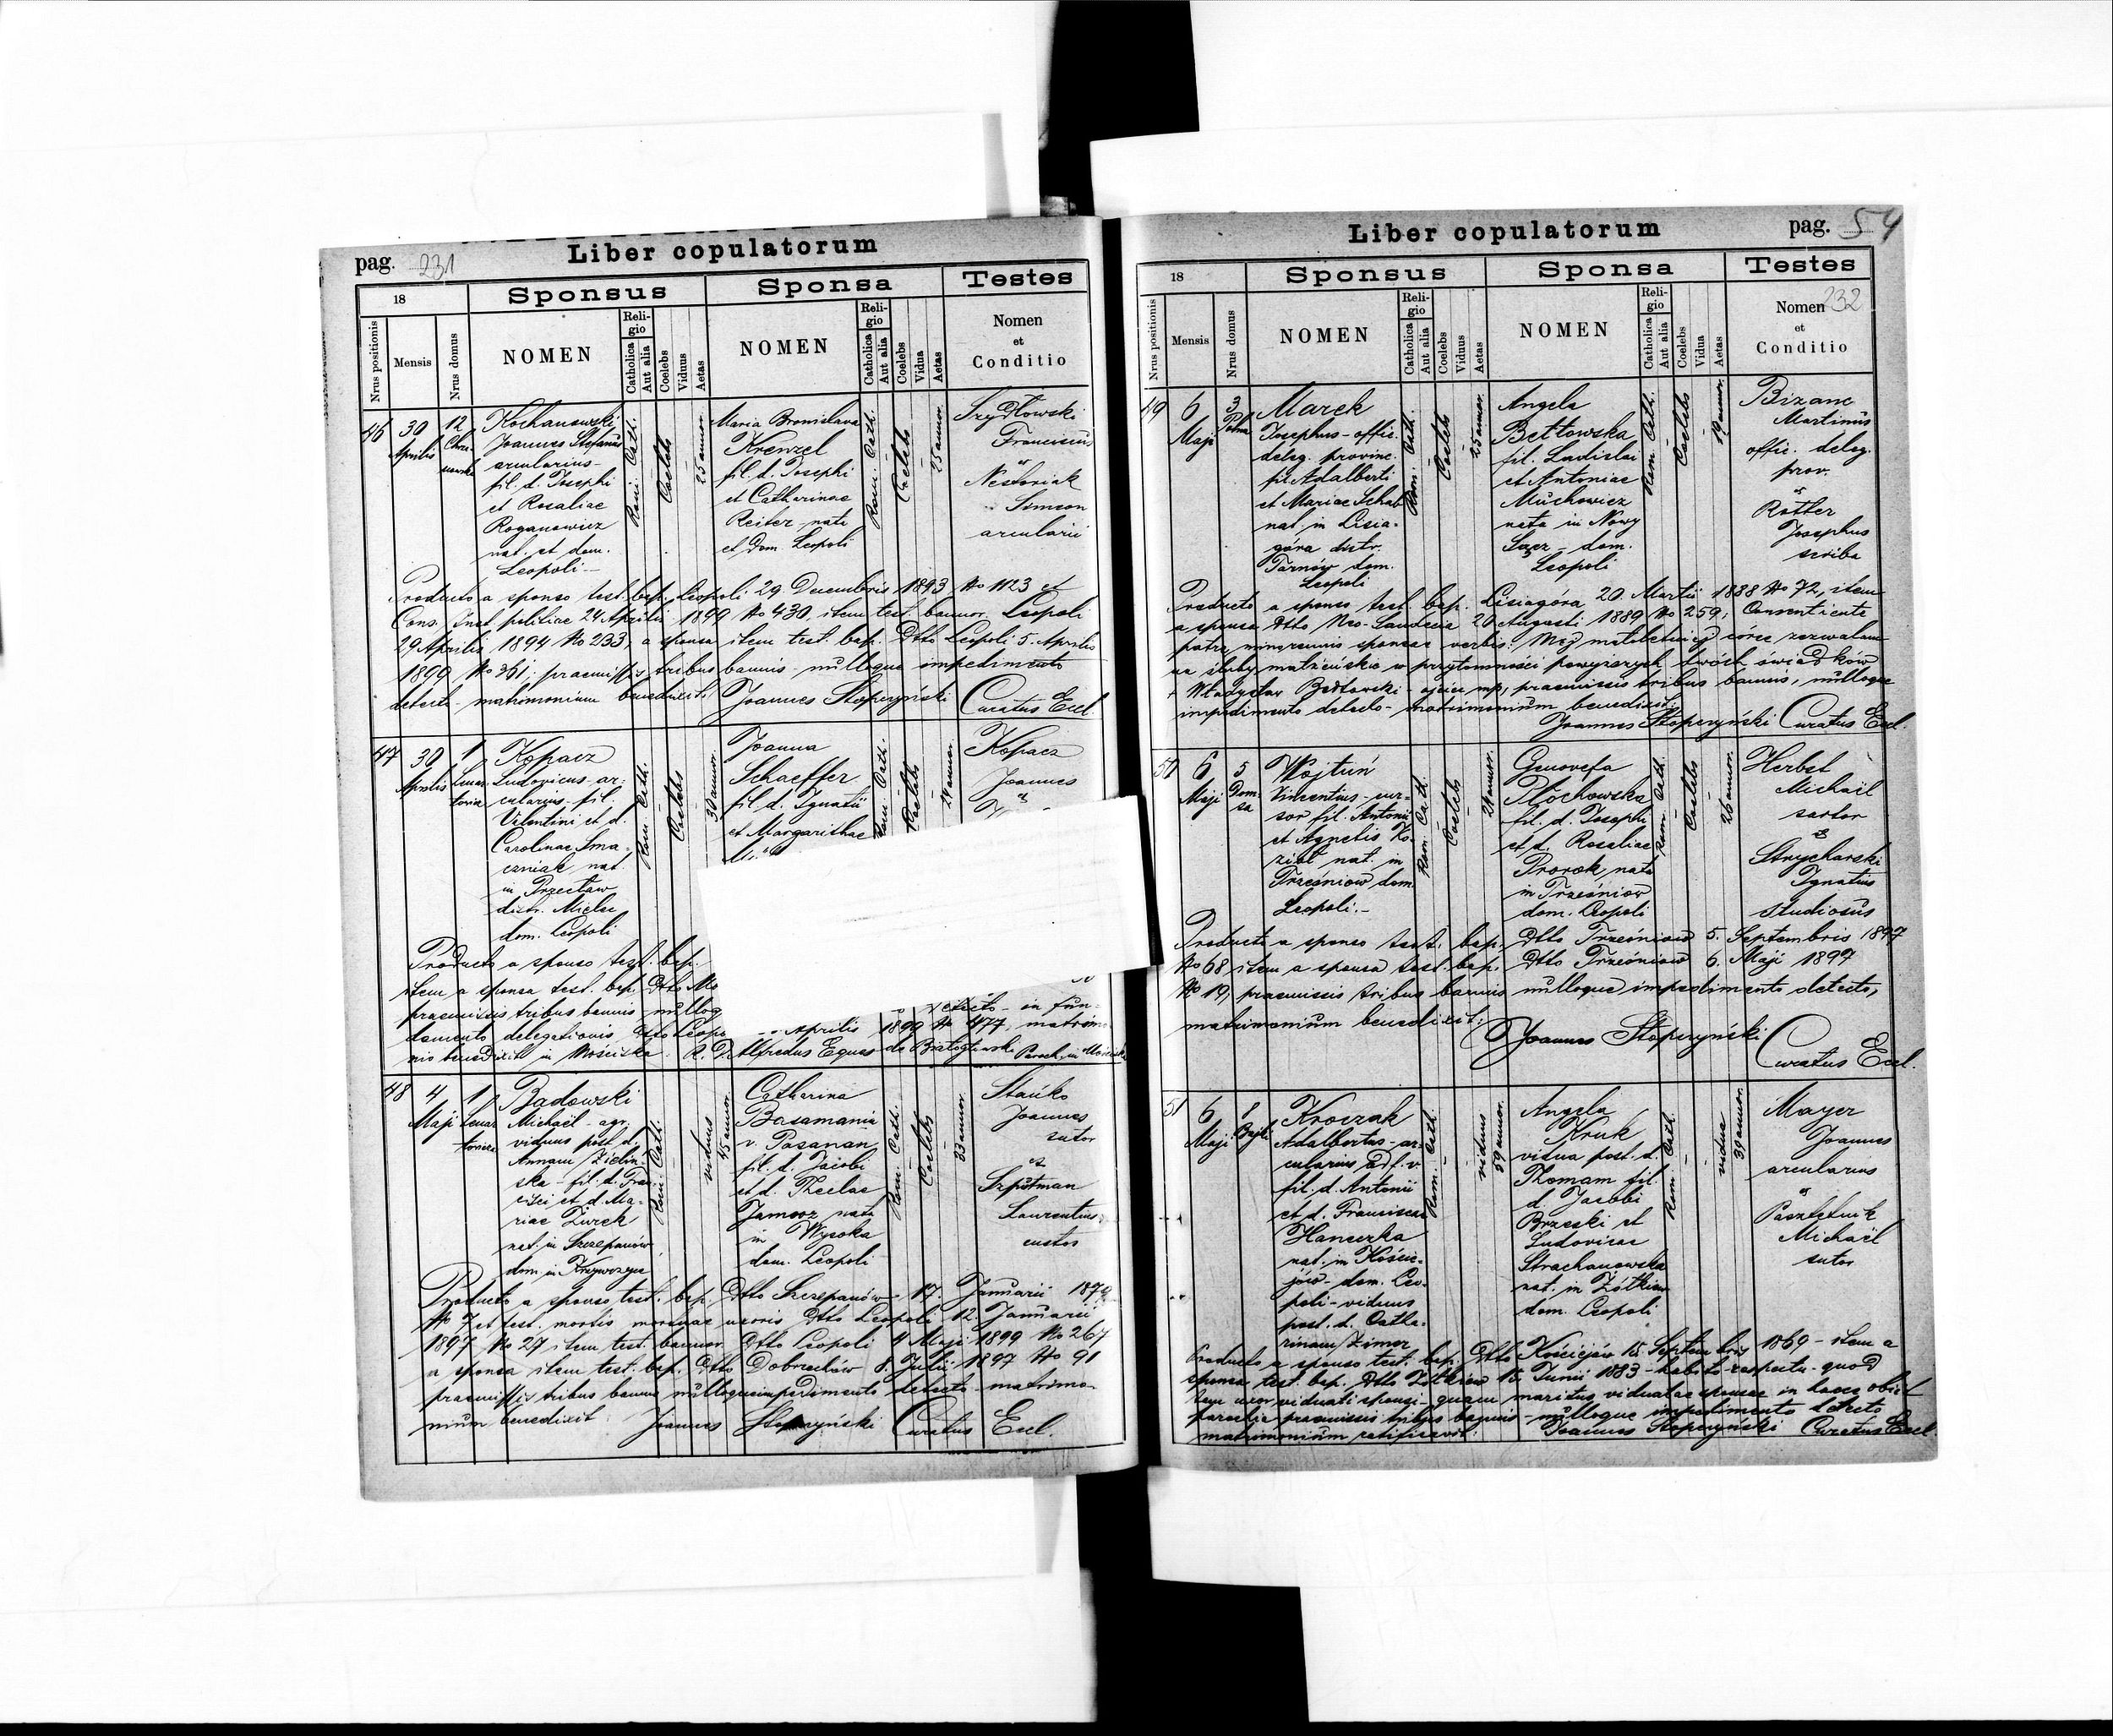 pag. 231
Liber copulatorum
18
Sponsus
Sponsa
Testes
Nrus positionis
Mensis
Nrus domus
NOMEN
Religio
Catholica
Aut alia
Coelebs
Viduus
Aetas
NOMEN
Religio
Catholica
Aut alia
Coelebs
Vidua
Aetas
Nomen
et
Conditio
46
30
Aprilis
12
Kochanowski
Joannes Stefanus
arcularius -
fil. d. Josephi
et Rosaliae
Roganowicz
nat. et dom.
Leopoli -
Rom. Cath.
Coelebs
25 annor.
Maria Bronislava
Krenzel
fil. d. Josephi
et Catharinae
Reiter nata
et dom. Leopoli
Rom. Cath.
Coelebs
25 annor.
Szydłowski
Franciscus
et
Nestoriak
Simeon
arcularii
Producto a sponso test. bap. Leopoli 29 Decembris 1893 No 1123 et
Cons. Inst. politiae 24 Aprilis 1899 No 430, item test. bannor. Leopoli
29 Aprilis 1894 No 233, a sponsa item test. bap. Dtto Leopoli 5. Aprilis
1899 No 361; praemissis tribus bannis - nulloque impedimento
detecto - matrimonium benedixit: Joannes Stopczyński Curatus Eccl.
47
30
Aprilis
1
Kopacz
Ludovicus ar-
cularius - fil.
Valentini et d.
Carolinae Sma-
czniak nat.
in Przecław
distr. Mielec
dom. Leopoli
Rom. Cath.
Coelebs
30 annor.
Joanna
Schaeffer
fil. d. Ignatii
et Margarithae
Rom. Cath.
Coelebs
24 annor.
Kopacz
Joannes
et
Producto a sponso test. bap.
item a sponsa test. bap. Dtto Mo
praemissis tribus bannis nulloq
detecto - in fun-
damento delegationis Dtto Leopo
Aprilis 1899 No 477, matrimo-
nio benedixit in Mościska.
48
4
Maji
1
Badowski
Michaël - agr.
viduus post d.
Annam Zielin-
ska - fil. d. Fran-
cisci et d. Ma-
riae Żurek
nat. in Szczepanów
dom. in Krzywczyce
Rom. Cath.
viduus
45 annor.
Catharina
Basamania
v. Pasanan
fil. d. Jacobi
et d. Theclae
Jamroz nata
in Wysoka
dom. Leopoli
Rom. Cath.
Coelebs
33 annor.
Stańko
Joannes
sutor
et
Laurentius
custos
Producto a sponso test. bap. Dtto Szczepanów 17. Januarii
No 7 et test. mortis uxoris Dtto Leopoli 12. Januarii
1897 No 27 item test. bannor. Dtto Leopoli 4 Maji 1899 No 267
a sponsa item test. bap. Dtto Dobrzechów 8. Julii 1897 No 91
praemissis tribus bannis nulloque impedimento detecto - matrimo-
nium benedixit Joannes Stopczyński Curatus Eccl.
Liber copulatorum
pag. 54
18
Sponsus
Sponsa
Testes
Nrus positionis
Mensis
Nrus domus
NOMEN
Religio
Catholica
Aut alia
Coelebs
Viduus
Aetas
NOMEN
Religio
Catholica
Aut alia
Coelebs
Vidua
Aetas
Nomen 232
et
Conditio
49
6
Maji
3
Marek
Josephus - offic.
deleg. provinc.
fil. Adalberti
et Mariae Schab
nat. in Lisia-
góra distr.
Tarnów dom.
Leopoli
Rom. Cath.
Coelebs
25 annor.
Angela
Bełtowska
fil. Ladislai
et Antoniae
Muchowicz
nata in Nowy
Sącz - dom.
Leopoli
Rom. Cath.
Coelebs
Bizanc
Martinus
offic. deleg.
prov.
et
Rotter
Josephus
scriba
Producto a sponso test. bap. Lisiagóra 20 Martii 1888 No 72, item
a sponsa Dtto Neo-Sandecia 20 Augusti 1889 No 259; Consentiente
patre minorennis sponsae verbis: Mej małoletniej córce zezwalam
na śluby małżeńskie w przytomności powyższych dwóch świadków
+ Władysław Bełtowski - ojciec mp, praemissis tribus bannis, nulloque
impedimento detecto - matrimonium benedixit:
Joannes Stopczyński Curatus Eccl.
50
6
Maji
5
Wojtuń
Vincentius - cur-
sor fil. Antonii
et Agnetis Ko-
zioł nat. in
Trześniow dom.
Leopoli. -
Rom. Cath.
Coelebs
Genovefa
Płochowska
fil. d. Josephi
et d. Rosaliae
Prorok nata
in Trześniow
dom. Leopoli
Rom. Cath.
Coelebs
26 annor.
Herbst
Michaël
sartor
et
Strycharski
Ignatius
studiosus
Producto a sponso test. bap. Dtto Trześniow 5. Septembris 1897
No 68 item a sponsa test. bap. Dtto Trześniow 6. Maji 1897
No 19, praemissis tribus bannis nulloque impedimento detecto,
matrimonium benedixit:
Joannes Stopczyński
Curatus Eccl.
51
6
Maji
Kroczak
Adalbertus - ar-
cularius
fil. d. Antonii
et d. Franciscae
Hanczka
nat. in Koście-
jów - dom. Leo-
poli - viduus
post. d. Catha-
rinam Zimer
Rom. Cath.
viduus
59 annor.
Angela
Kruk
vidua post. d.
Thomam fil.
d. Jacobi
Brzeski et
Ludovicae
Strachanowska
nat. in Żółkiew
dom. Leopoli
Rom. Cath.
vidua
Mayer
Joannes
arcularius
et
Pasztetnik
Michaël
sutor
Producto a sponso test. bap. Dtto Kościejów 15. Septembris 1869 - item a
sponsa test. bap. Dtto Żółkiew 15. Junii 1883 - habito respectu - quod
tam uxor viduati sponsi - quam maritus viduatae sponsae in hacce obiit
parochia praemissis tribus bannis - nulloque impedimento detecto
matrimonium ratificavit: Joannes Stopczyński Curatus Eccl.